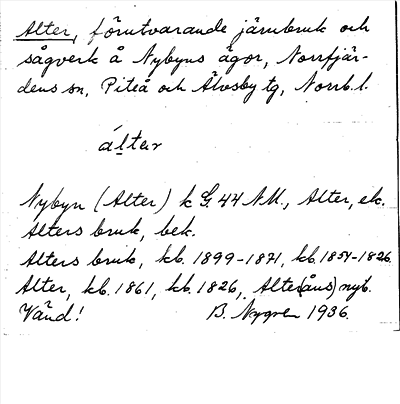 Alter, förutvarande järnbruk och
sågverk å Nybyns ägor, Norrfjär-
dens sn, Piteå och Älvsby tg, Norrb. l.
áltar
Nybyn (Alter) k G. 44 NU., Alter, ek.
Alters bruk, bek.
Alters bruk, kb. 1899-1871, kb. 1854-1826
Alter, kb. 1861, kb. 1826, Alter(åns) nyb.
Vänd! B. Nygren 1936.